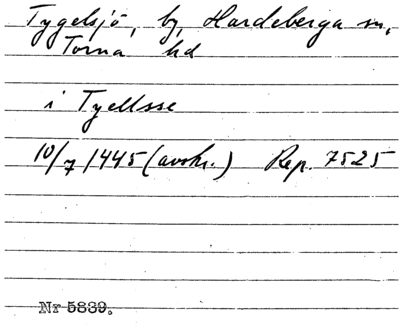 Tygelsjö, by, Hardeberga sn,
Torna hd
i Tyellsse
10/7 1445 (avskr.) Rep. 7525
Nr 5839.